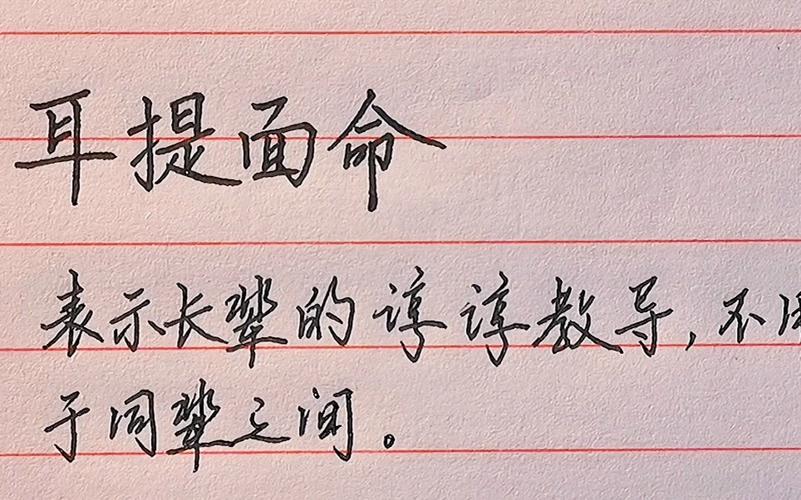 耳提面命
表示长辈的谆谆教导,不
于同辈之间。